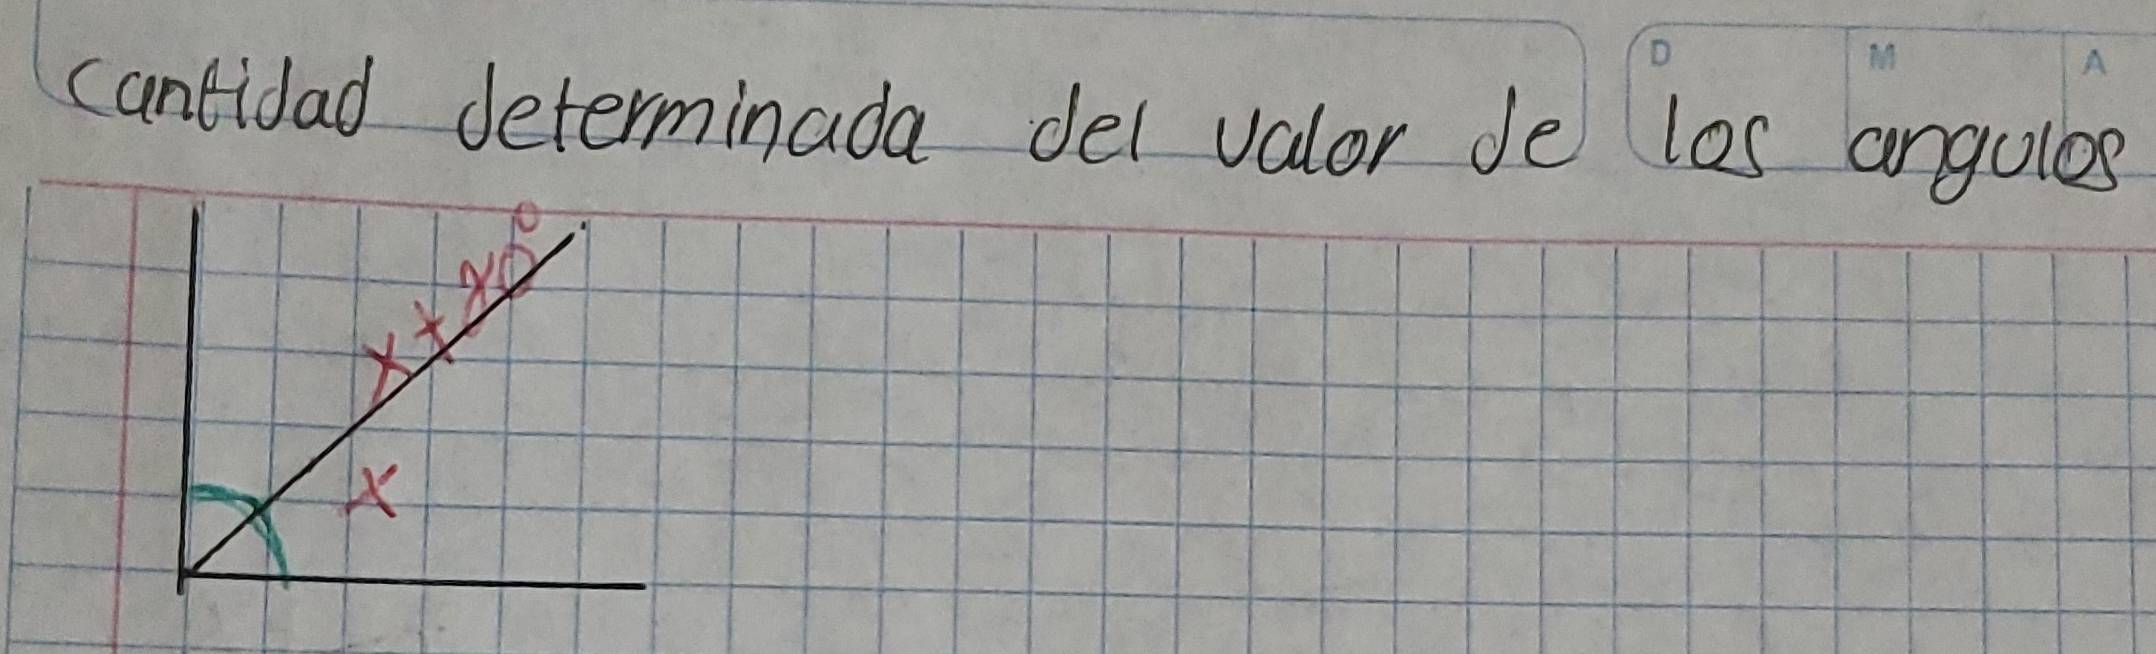 D M A
cantidad determinada del valor de los angulos
x +
x